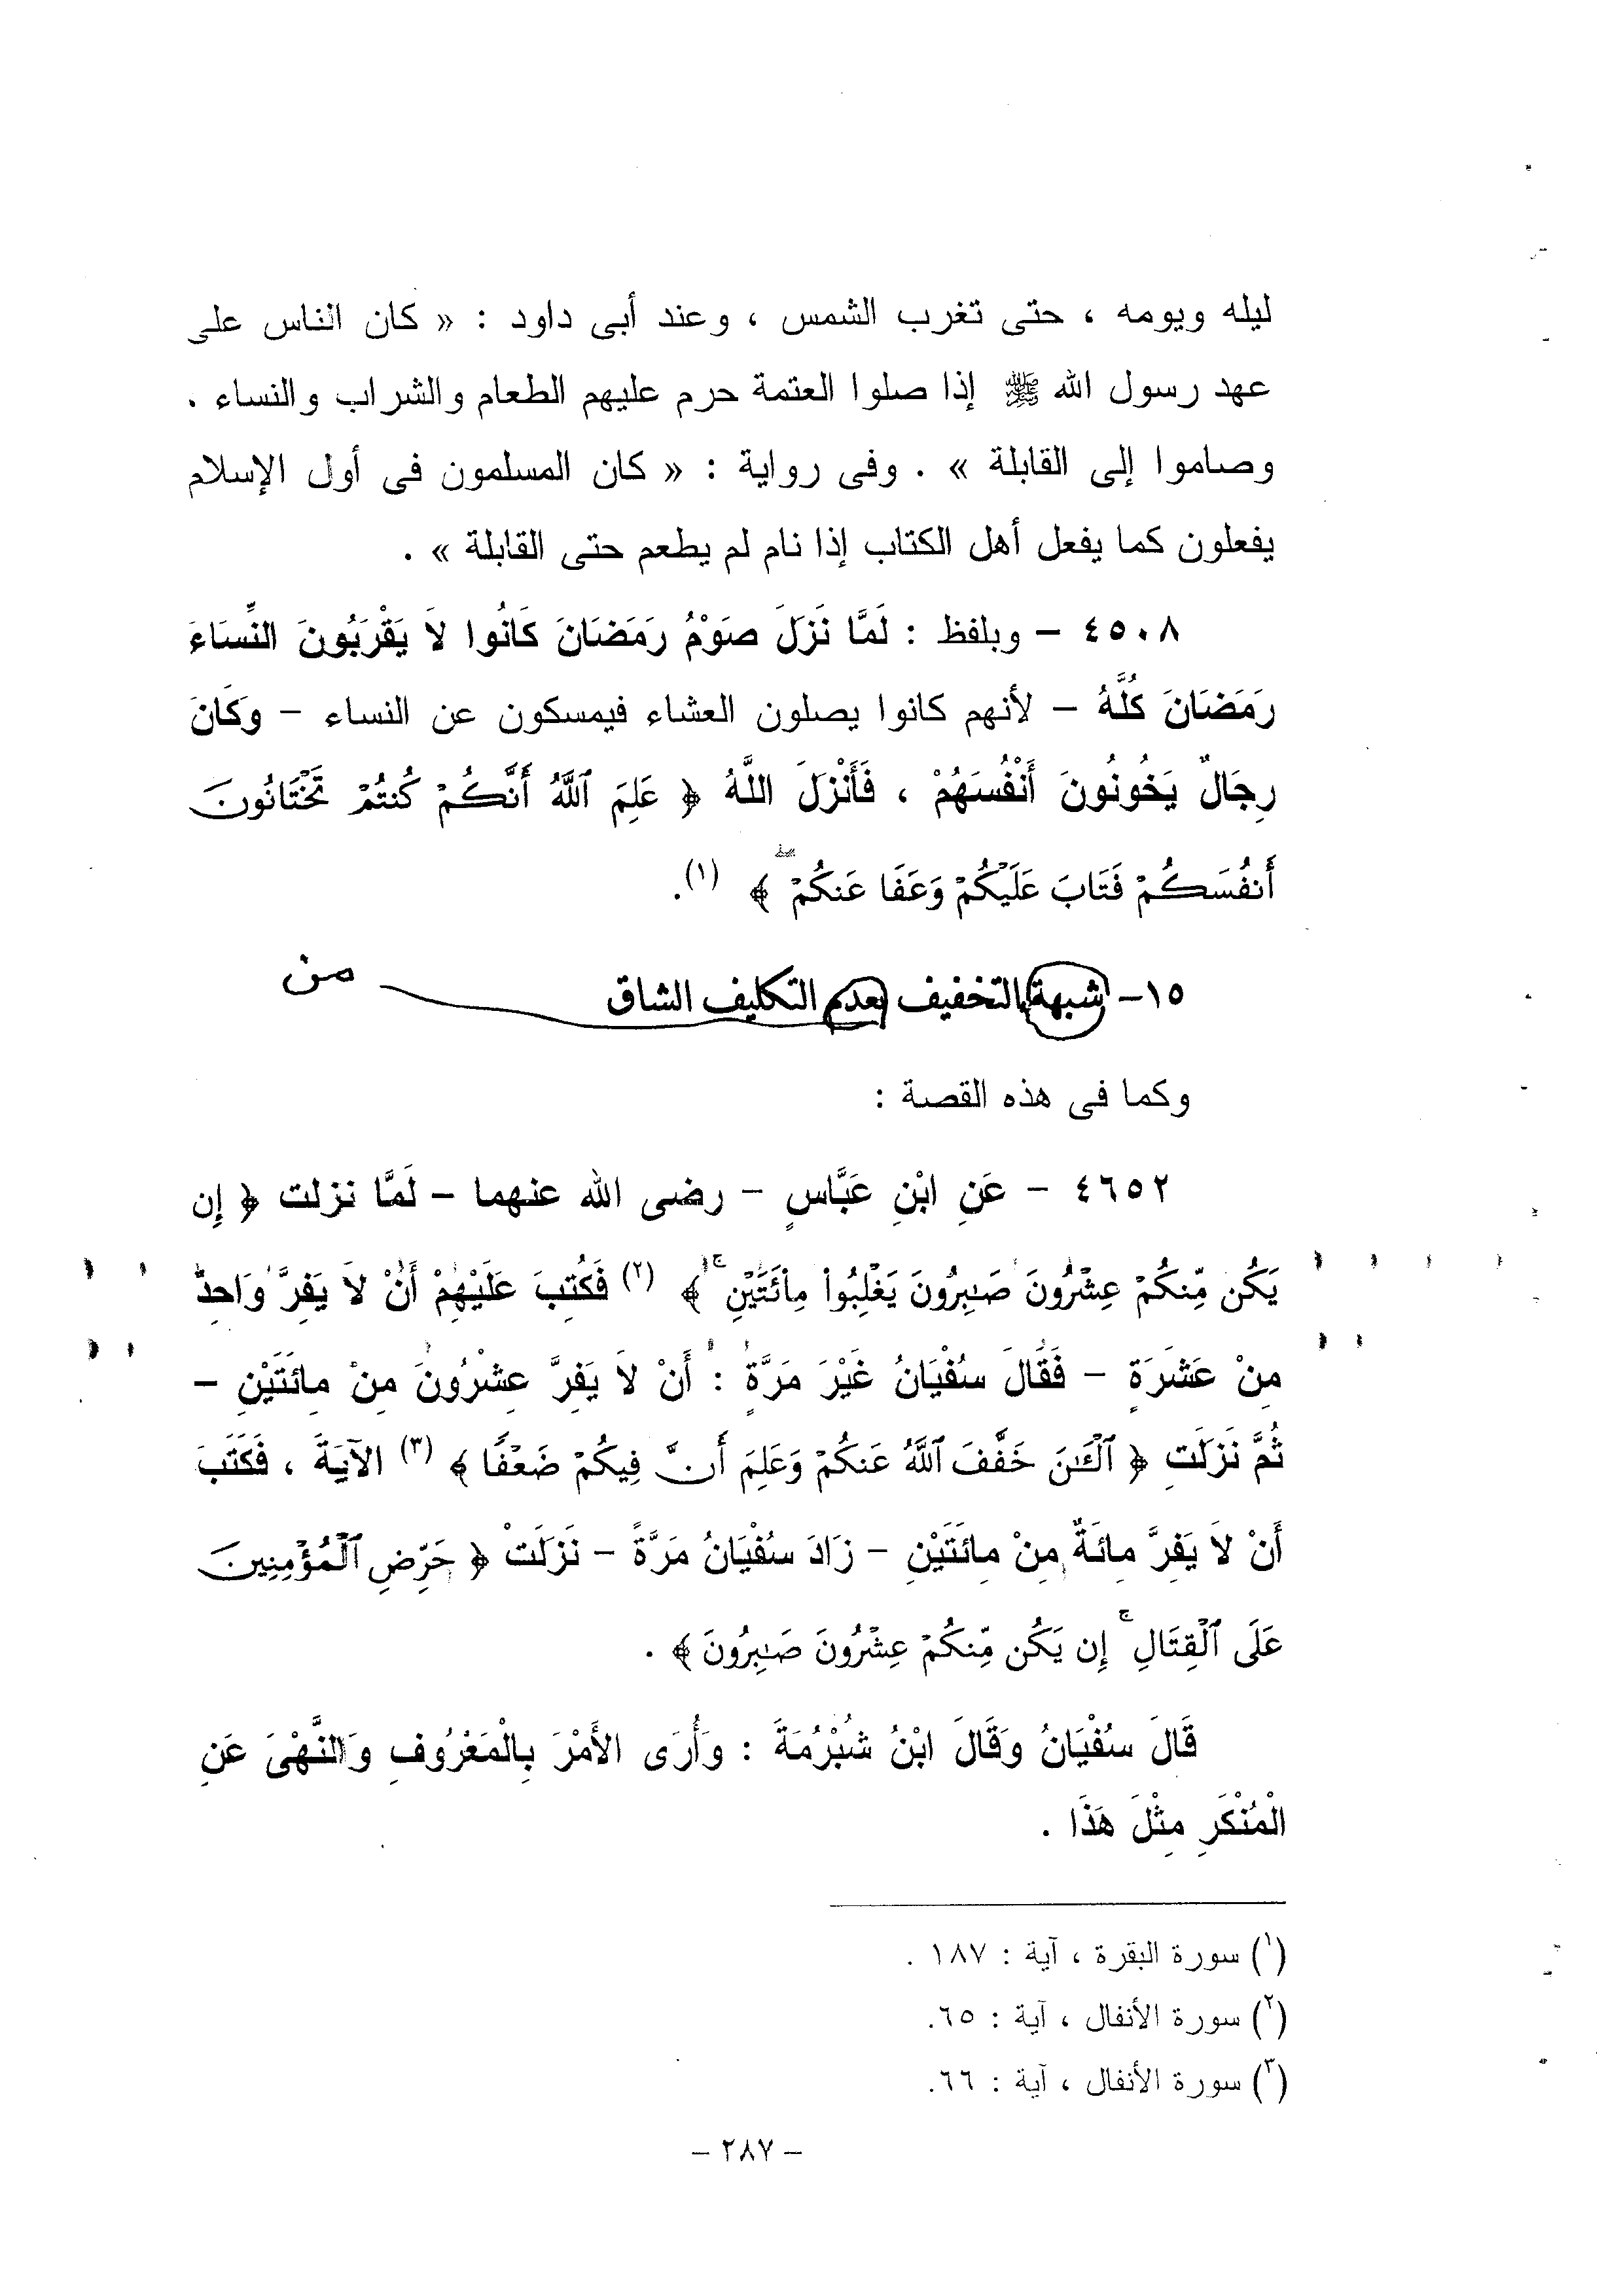 ليله ويومه ، حتى تغرب الشمس ، وعند أبى داود : « كان الناس على
عهد رسول الله ﷺ إذا صلوا العتمة حرم عليهم الطعام والشراب والنساء .
وصاموا إلى القابلة » . وفى رواية : « كان المسلمون فى أول الإسلام
يفعلون كما يفعل أهل الكتاب إذا نام لم يطعم حتى القابلة » .
٤٥٠٨ – وبلفظ : لَمَّا نَزَلَ صَوْمُ رَمَضَانَ كَانُوا لاَ يَقْرَبُونَ النِّسَاءَ
رَمَضَانَ كُلَّهُ – لأنهم كانوا يصلون العشاء فيمسكون عن النساء – وَكَانَ
رِجَالٌ يَخُونُونَ أَنْفُسَهُمْ ، فَأَنْزَلَ اللَّهُ ﴿ عَلِمَ ٱللَّهُ أَنَّكُمْ كُنتُمْ تَخْتَانُونَ
أَنفُسَكُمْ فَتَابَ عَلَيْكُمْ وَعَفَا عَنكُمْ ۖ ﴾ (١).
١٥– شبهة بالتخفيف بعدم التكليف الشاق من
وكما فى هذه القصة :
٤٦٥٢ – عَنِ ابْنِ عَبَّاسٍ – رضى الله عنهما – لَمَّا نزلت ﴿ إِن
يَكُن مِّنكُمْ عِشْرُونَ صَٰبِرُونَ يَغْلِبُوا۟ مِا۟ئَتَيْنِ ۚ ﴾ (٢) فَكُتِبَ عَلَيْهِمْ أَنْ لاَ يَفِرَّ وَاحِدٌ
مِنْ عَشَرَةٍ – فَقَالَ سُفْيَانُ غَيْرَ مَرَّةٍ : أَنْ لاَ يَفِرَّ عِشْرُونَ مِنْ مِائَتَيْنِ –
ثُمَّ نَزَلَتِ ﴿ ٱلْـَٰٔنَ خَفَّفَ ٱللَّهُ عَنكُمْ وَعَلِمَ أَنَّ فِيكُمْ ضَعْفًا ﴾ (٣) الآيَةَ ، فَكَتَبَ
أَنْ لاَ يَفِرَّ مِائَةٌ مِنْ مِائَتَيْنِ – زَادَ سُفْيَانُ مَرَّةً – نَزَلَتْ ﴿ حَرِّضِ ٱلْمُؤْمِنِينَ
عَلَى ٱلْقِتَالِ ۚ إِن يَكُن مِّنكُمْ عِشْرُونَ صَٰبِرُونَ ﴾ .
قَالَ سُفْيَانُ وَقَالَ ابْنُ شُبْرُمَةَ : وَأُرَى الأَمْرَ بِالْمَعْرُوفِ وَالنَّهْىَ عَنِ
الْمُنْكَرِ مِثْلَ هَذَا .
(١) سورة البقرة ، آية : ١٨٧ .
(٢) سورة الأنفال ، آية : ٦٥.
(٣) سورة الأنفال ، آية : ٦٦.
– ٢٨٧ –